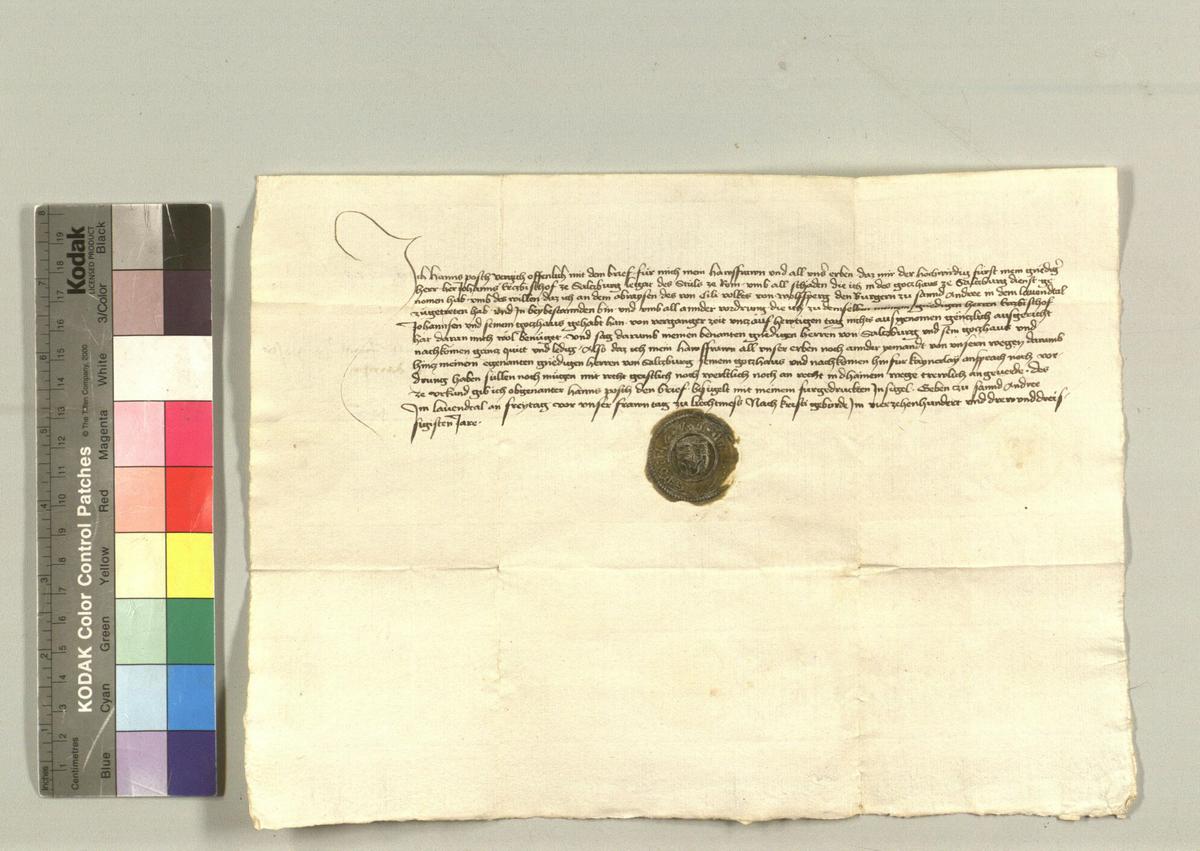 Ich Hanns posch vergich offenlich mit dem brief fur mich mein hawsfrawn und all uns erben daz mir der hochwirdig fürst mein gnedig
herr her Johanns Ertzbischof ze Saltzburg legat des Stuls ze Rom umb all schäden die ich in des gotzhaus ze Saltzburg dienst ge
nomen hab umb des willen daz ich an dem von volkes von wolfsperg den burgern zu sannd Andree in dem lavendtal
zugetreten hab und in beybestannden bin und umb all annder vodrung die ich zu demselben meinem gnedigen herren Ertzbischof
Johannsen und seinem gotzhaus gehabt han von verganger zeit untz auf hewtigen tag nichts ausgenomen gentzlich ausgericht
hat daran mich wol benüget und sag darumb meinen benanten gnedigen herren von Saltzburg und sein gotzhaus und
nachkomen gantz quitt und ledig Also daz ich mein hawsfrawn all unser erben noch annder yemandt von unsern wegen darumb
hintz meinem egenanten gnedigen herren von Saltzburg seinem gotzhaus und nachkomen hinfur kain ansprach noch vor
drung haben sullen noch mügen mit recht geistlich noch werltlich noch an recht in dhainem wege trewlich angeverde des
ze urkund gib ich obgenanter hanns posch den brief besigelt mit meinem furgedruckten Insigel Geben zu sannd Andree
Im lavendtal an freytag vor unser frawn tag zu liechtmess Nach kristi geborde Im vierzehenhundert und drew und dreis
sigisten Jare
KODAK Color Control Patches
© The Tiffen Company, 2000
Kodak
LICENSED PRODUCT
Blue Cyan Green Yellow Red Magenta White 3/Color Black
Inches 1 2 3 4 5 6 7 8
Centimetres 1 2 3 4 5 6 7 8 9 10 11 12 13 14 15 16 17 18 19